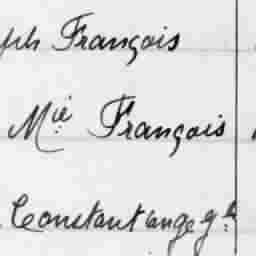 ph François
Mie François
Constant ange gle